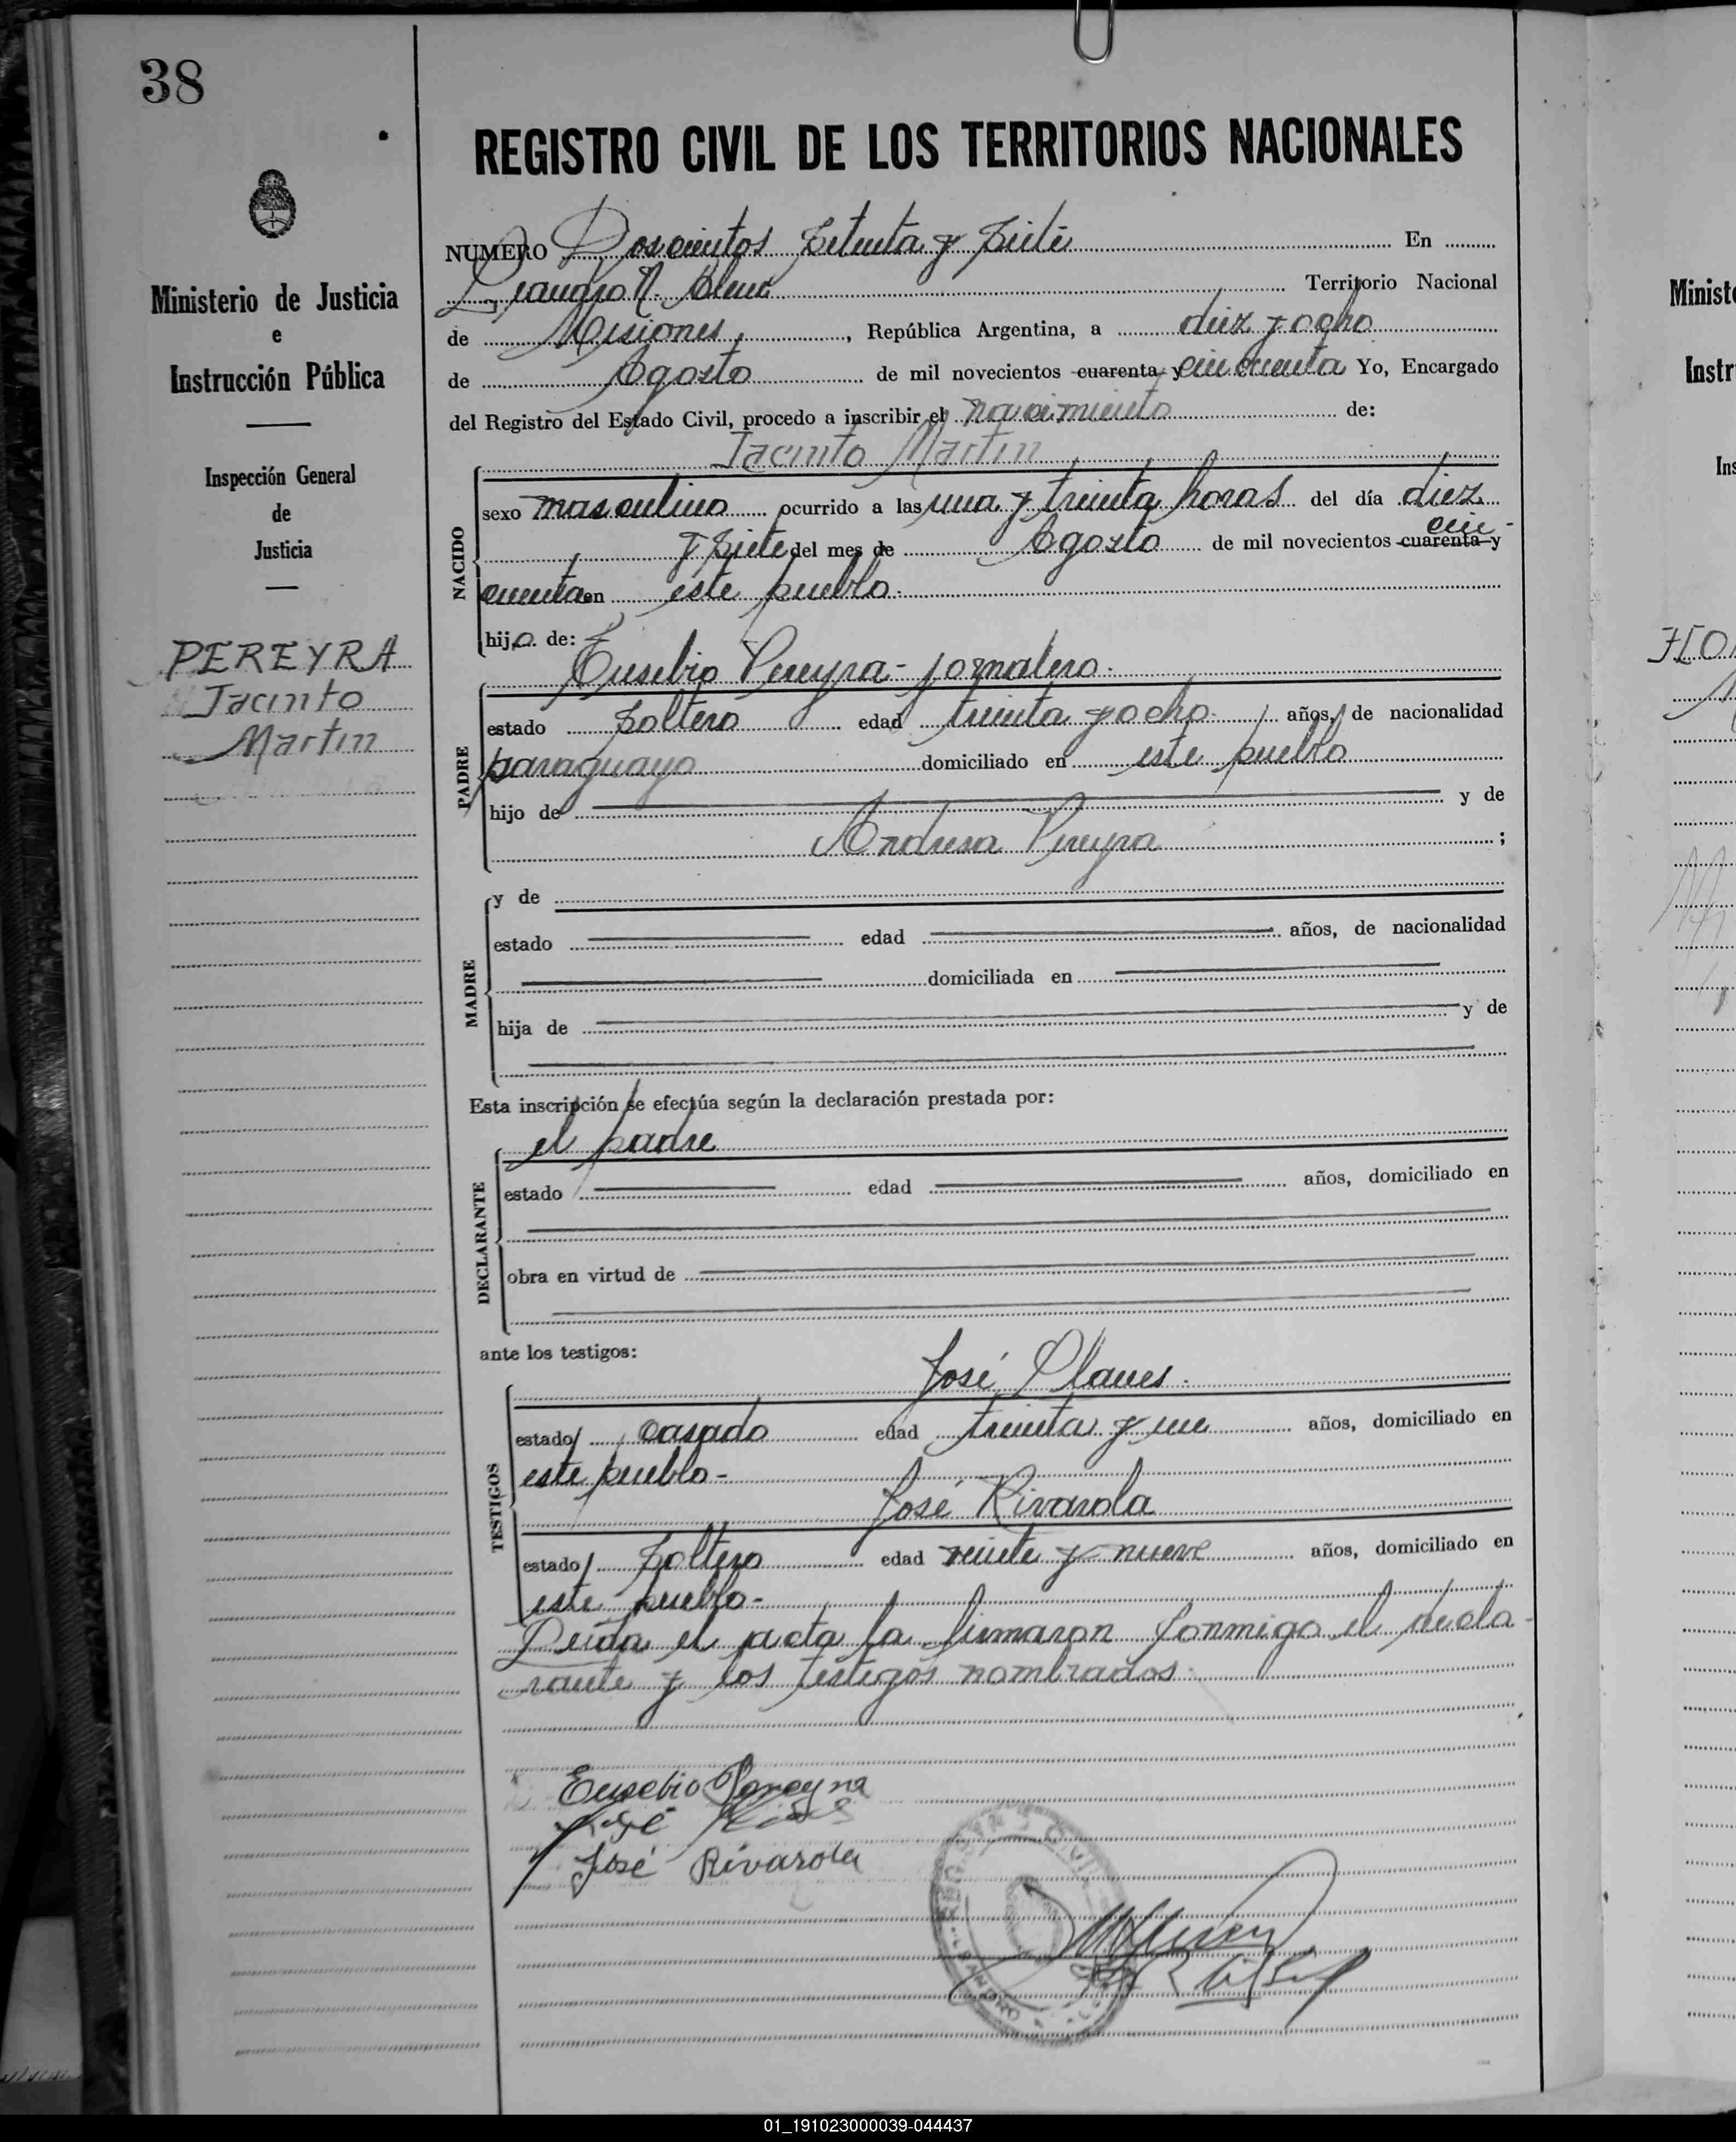 38
REGISTRO CIVIL DE LOS TERRITORIOS NACIONALES
Ministerio de Justicia
e
Instrucción Pública
Inspección General
de
Justicia
PEREYRA
Jacinto
Martin
NUMERO Doscientos setenta y siete En
Leandro N. Alem Territorio Nacional
de Misiones, República Argentina, a diez y ocho
de Agosto de mil novecientos cuarenta y cincuenta Yo, Encargado
del Registro del Estado Civil, procedo a inscribir el nacimiento de:
Jacinto Martin
NACIDO
sexo masculino ocurrido a las una y treinta horas del día diez
y siete del mes de Agosto de mil novecientos cuarenta y cin-
cuenta en este pueblo.
hijo de:
Eusebio Pereyra - jornalero.
PADRE
estado soltero edad treinta y ocho años, de nacionalidad
paraguayo domiciliado en este pueblo
hijo de y de
Andresa Pereyra ;
MADRE
y de
estado edad años, de nacionalidad
domiciliada en
hija de y de
Esta inscripción se efectúa según la declaración prestada por:
el padre
DECLARANTE
estado edad años, domiciliado en
obra en virtud de
ante los testigos:
José
TESTIGOS
estado casado edad treinta y un años, domiciliado en
este pueblo -
José Rivarola
estado soltero edad veinte y nueve años, domiciliado en
este pueblo -
Leída el acta la firmaron conmigo el decla-
rante y los testigos nombrados.
Eusebio Pereyra
José
José Rivarola
01_191023000039-044437